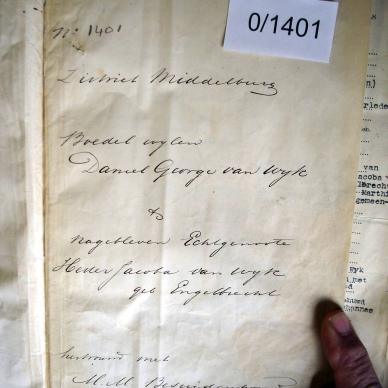 0/1401
No. 1401
District Middelburg
Boedel wylen
Daniel George van Wyk
&
nagebleven Echtgenoote
Hester Jacoba van Wyk
geb Engelbrecht
hertrouwd met
M. M. Bezuidenhout
8
van
acoba v
brech
Marthi
gemeen-
yk
met
d